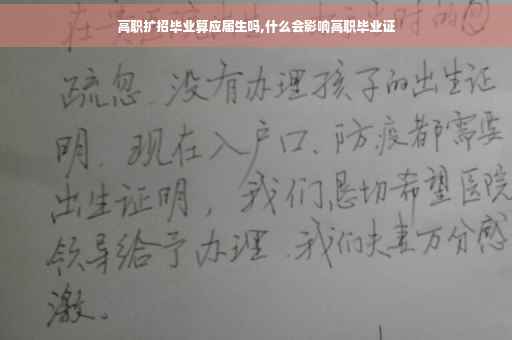 高职扩招毕业算应届生吗,什么会影响高职毕业证
疏忽.没有办理孩子的出生证
明.现在入户口、防疫都需要
出生证明，我们恳切希望医院
领导给予办理.我们夫妻万分感
激。